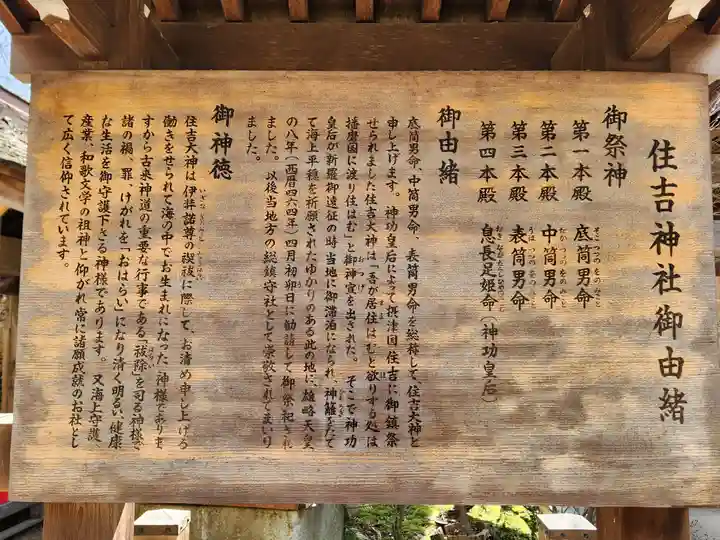 住吉神社御由緒
御祭神
第一本殿 底筒男命
そこつつのをのみこと
第二本殿 中筒男命
なかつつのをのみこと
第三本殿 表筒男命
うはつつのをのみこと
第四本殿 息長足姫命(神功皇后)
おきながたらしひめのみこと
御由緒
底筒男命、中筒男命、表筒男命を総称して、住吉大神と
申し上げます。神功皇后によって摂津国住吉に御鎮祭
せられました住吉大神は「吾が居住はむと欲りする処は
播磨国に渡り住はむ」と御神宣を出された。そこで神功
皇后が新羅御遠征の時当地に御滞泊になられ、神籬をたて
て海上平穏を祈願されたゆかりのある此の地に、雄略天皇
の八年(西暦四六四年)四月初卯日に勧請して御祭祀され
ました。以後当地方の総鎮守社として崇敬されてまいり
ました。
御神徳
住吉大神は伊弉諾尊の禊祓に際して、お清め申し上げる
働きをせられて海の中でお生まれになった神様でありま
すから古来神道の重要な行事である「祓除」を司る神様で
諸の禍、罪、けがれを「おはらい」になり清く明るい、健康
な生活を御守護下さる神様であります。又海上守護、
産業、和歌文学の祖神と仰がれ常に諸願成就のお社とし
て広く信仰されています。